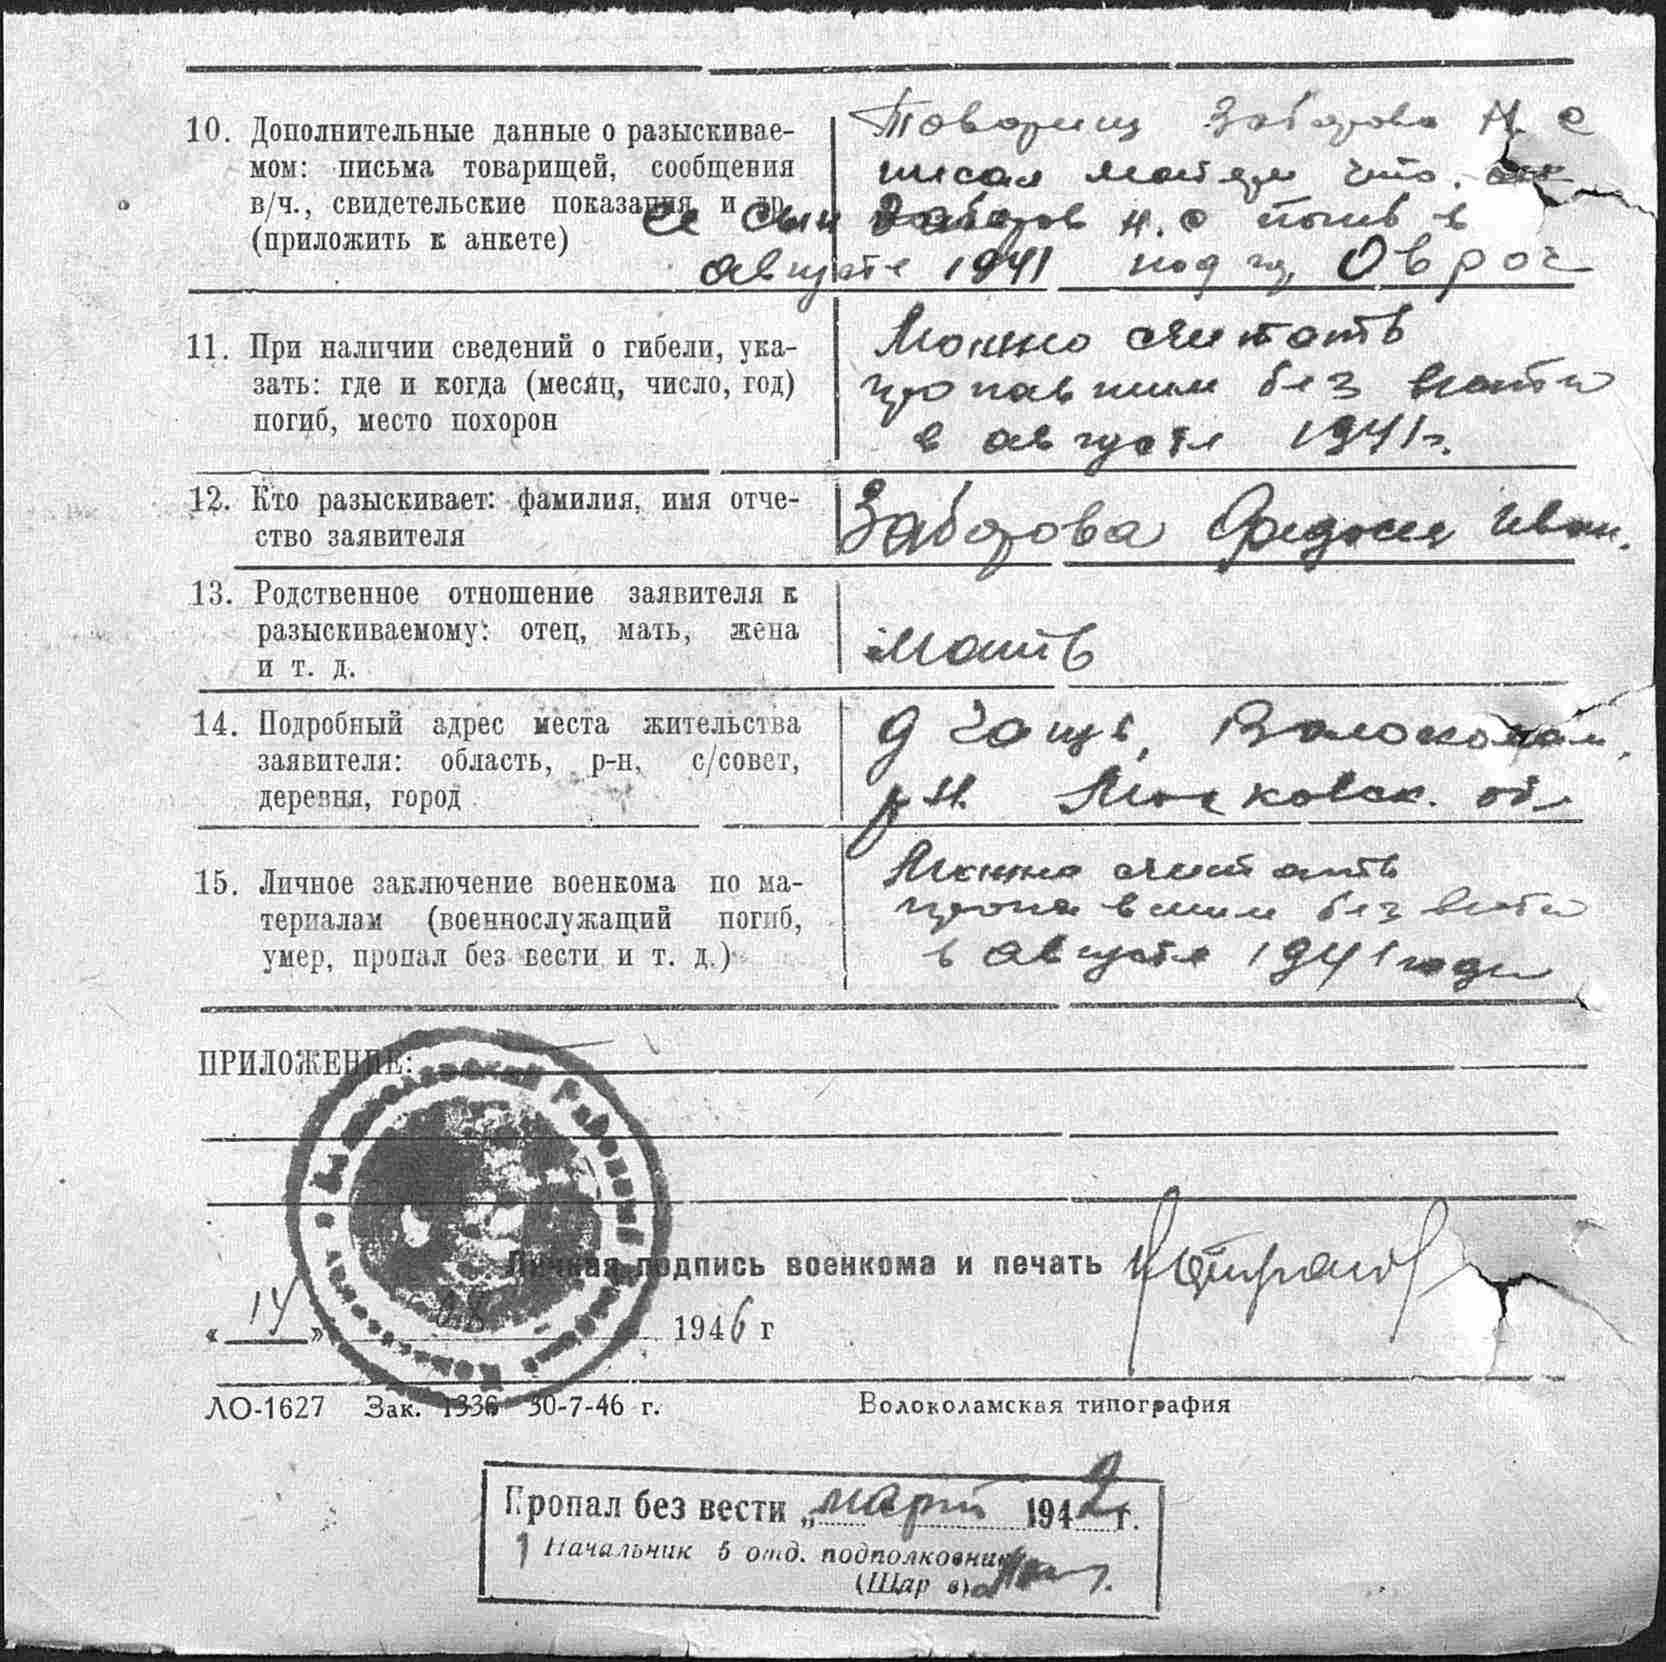 10. Дополнительные данные о разыскивае-
мом: письма товарищей, сообщения
в/ч., свидетельские показания и др.
(приложить к анкете)
Товарищ Заборова Н. С
писал матери что
ее сын Заборов Н. С погиб в
августе 1941 под гор. Овроч
11. При наличии сведений о гибели, ука-
зать: где и когда (месяц, число, год)
погиб, место похорон
Можно считать
пропавшим без вести
в августе 1941 г.
12. Кто разыскивает: фамилия, имя отче-
ство заявителя
Заборова Федосия Иван.
13. Родственное отношение заявителя к
разыскиваемому: отец, мать, жена
и т. д.
мать
14. Подробный адрес места жительства
заявителя: область, р-н, с/совет,
деревня, город
д Чащь, Волоколам.
р-н. Московск. обл
15. Личное заключение военкома по ма-
териалам (военнослужащий погиб,
умер, пропал без вести и т. д.)
Можно считать
пропавшим без вести
в августе 1941 года
ПРИЛОЖЕНИЕ:
Личная подпись военкома и печать
« 14 » 1946 г
ЛО-1627 Зак. 1336 30-7-46 г. Волоколамская типография
Пропал без вести „март 1942 г.
Начальник 5 отд. подполковник